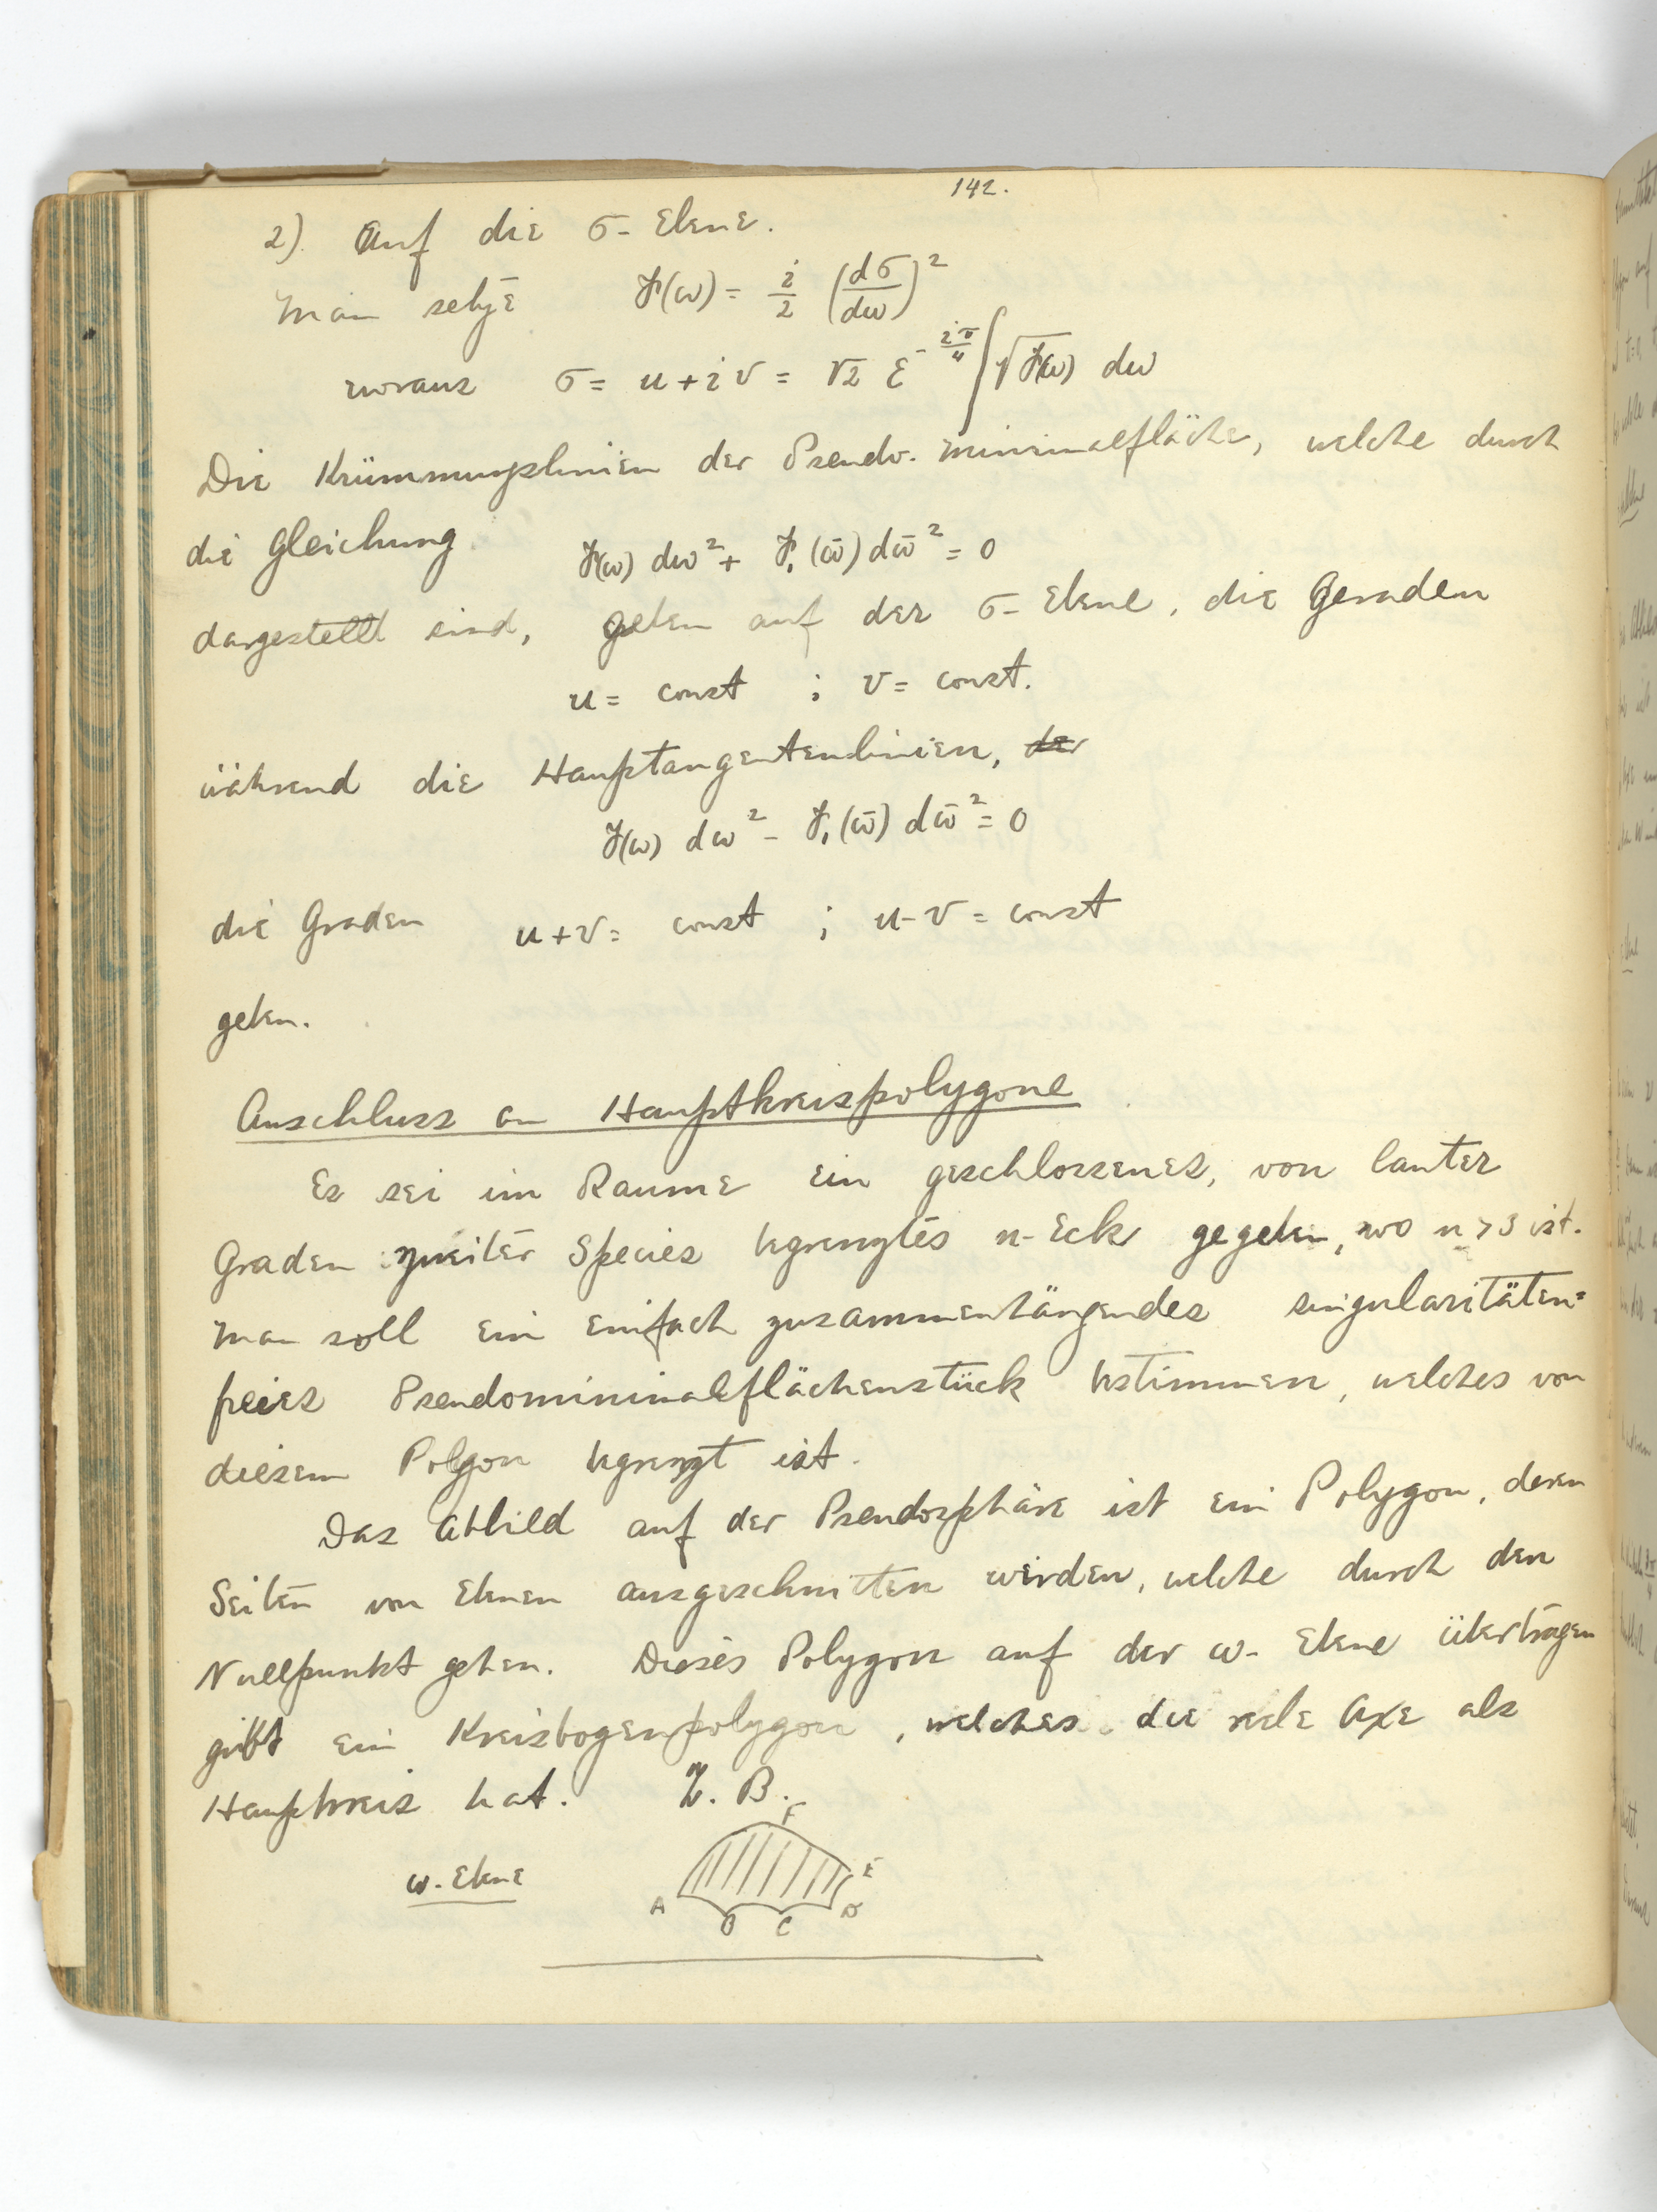 142.
2) Auf die σ-Ebene.
Man setze F(ω) = i/2 (dσ/dω)²
woraus σ = u + iv = √2 e^(-iπ/4) ∫ √F(ω) dω
Die Krümmungslinien der Pseudo-Minimalfläche, welche durch
die Gleichung
F(ω) dω² + F₁(ω̄) dω̄² = 0
dargestellt sind, geben auf der σ-Ebene, die Geraden
u = const ; v = const.
während die Haupttangentenlinien, der
F(ω) dω² - F₁(ω̄) dω̄² = 0
die Graden u+v = const ; u-v = const
geben.
Anschluss an Hauptkreispolygone
Es sei im Raume ein geschlossenes, von lauter
Graden zweiter Species begrenztes n-Eck gegeben, wo n > 3 ist.
Man soll ein einfach zusammenhängendes singularitäten=
freies Pseudominimalflächenstück bestimmen, welches von
diesem Polygon begrenzt ist.
Das Abbild auf der Pseudosphäre ist ein Polygon, deren
Seiten von Ebenen ausgeschnitten werden, welche durch den
Nullpunkt gehen. Dieses Polygon auf der ω-Ebene übertragen
gibt ein Kreisbogenpolygon, welches die reele Axe als
Hauptkreis hat. Z.B.
F
ω-Ebene
E
A B C D